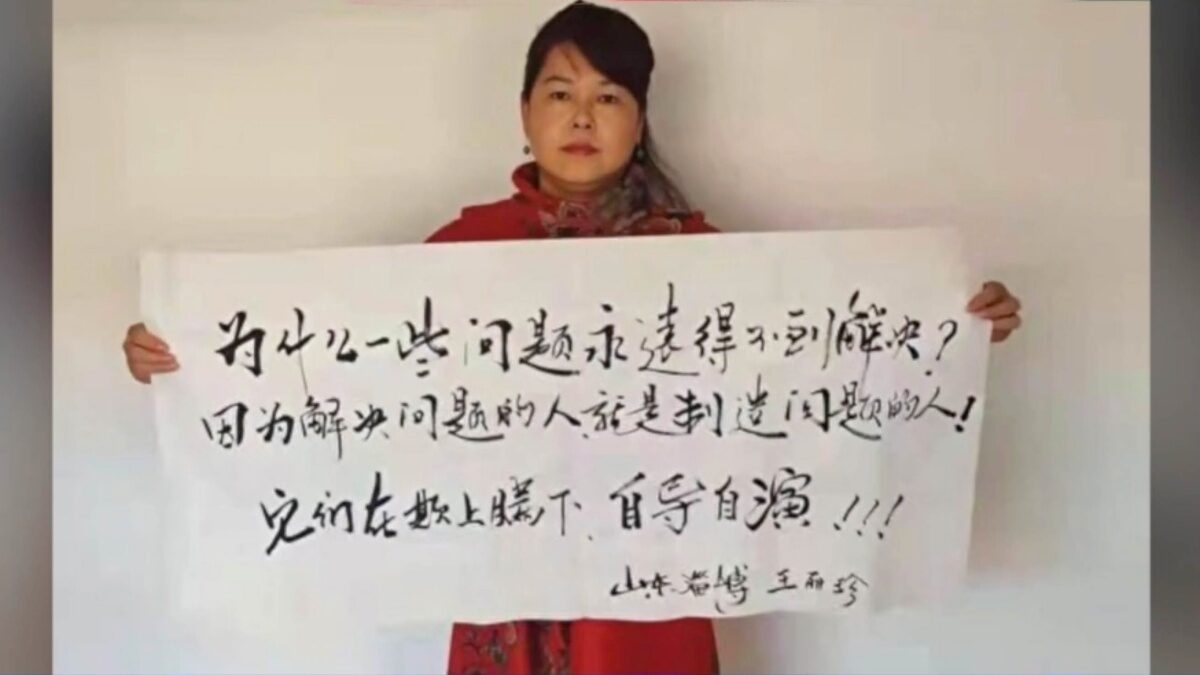 为什么一些问题永遠得不到解决？
因为解决问题的人、就是制造问题的人！
它们在欺上瞒下、自导自演！！！
山东淄博 王丽珍